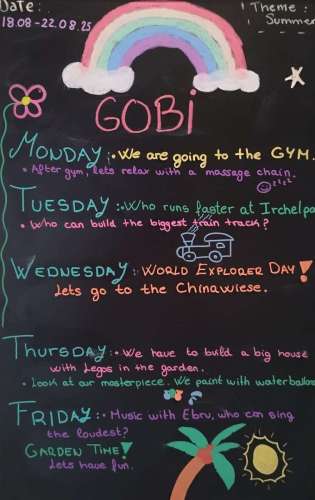 Date:
18.08-22.08.25
Theme:
Summer
GOBi
MONDAY: • We are going to the GYM.
• After gym, lets relax with a massage chain.
zzzz
TUESDAY: • Who runs faster at Irchelpa
• Who can build the biggest train track?
WEDNESDAY: • WORLD EXPLORER DAY!
Lets go to the Chinawiese.
THURSDAY: • We have to build a big house
with Legos in the garden.
• Look at our masterpiece. We paint with waterballoo
FRIDAY: • Music with Ebru, who can sing
the loudest?
GARDEN TIME!
Lets have fun.